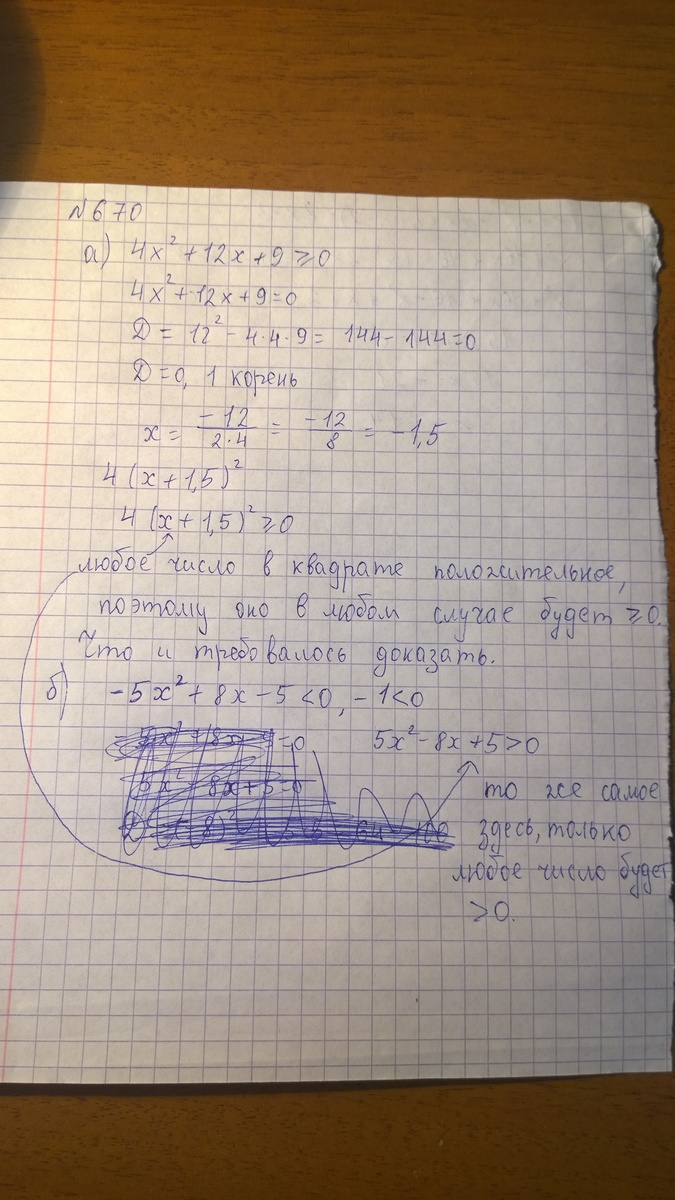 №670
а) 4x² + 12x + 9 ⩾ 0
4x² + 12x + 9 = 0
D = 12² - 4·4·9 = 144 - 144 = 0
D = 0, 1 корень
x = -12/2·4 = -12/8 = -1,5
4(x + 1,5)²
4(x + 1,5)² ⩾ 0
любое число в квадрате положительное,
поэтому оно в любом случае будет ⩾ 0.
Что и требовалось доказать.
б) -5x² + 8x - 5 < 0, -1 < 0
5x² - 8x + 5 > 0
то же самое
здесь, только
любое число будет
> 0.